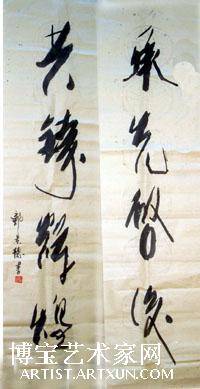 承先啓後
共鑄輝煌
郭景橋書
博宝艺术家网
ARTIST.ARTXUN.COM